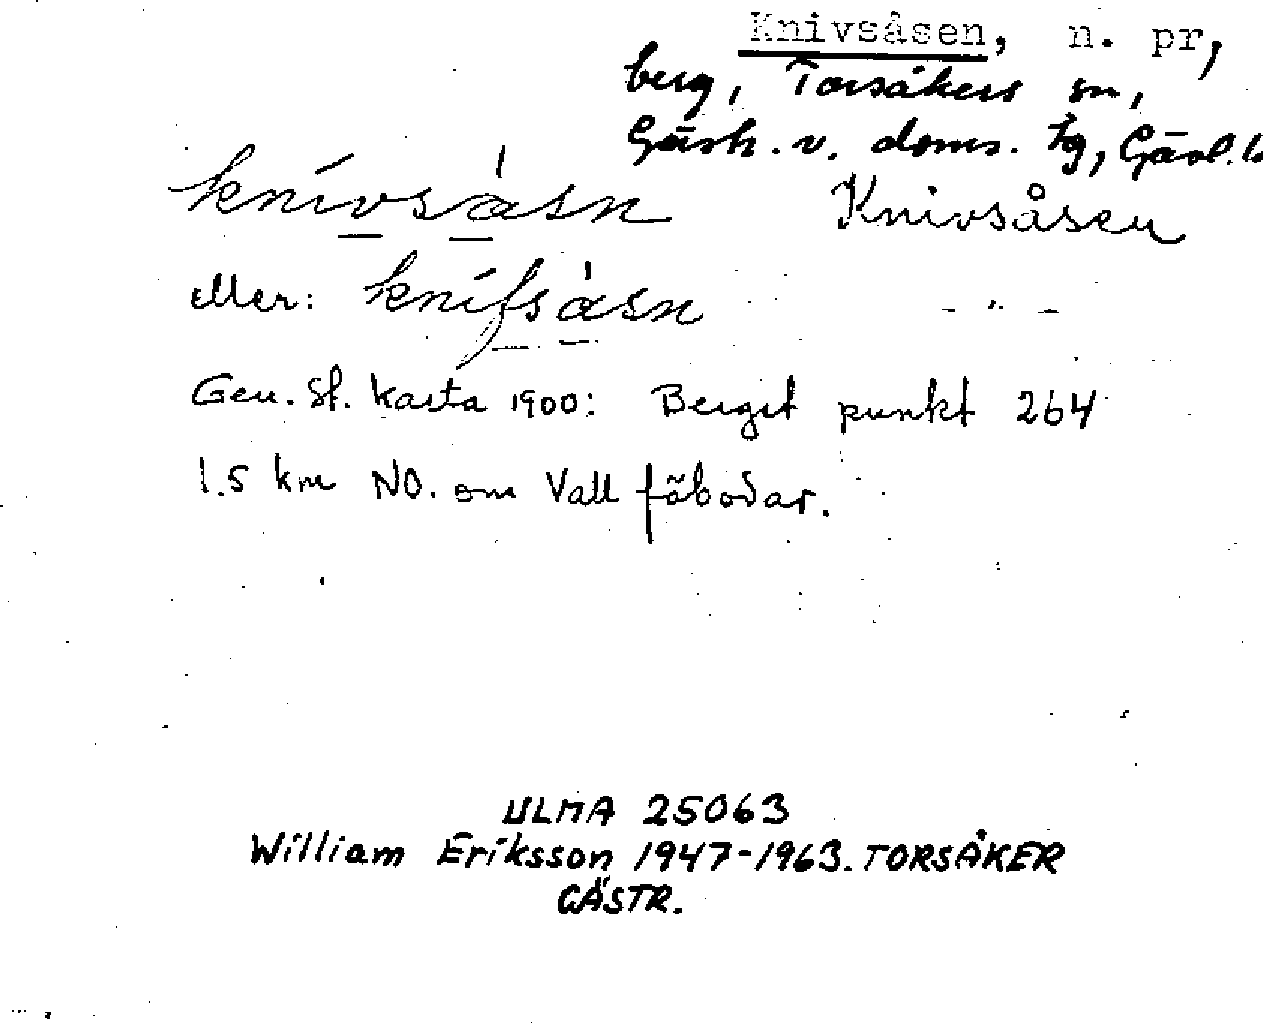 Knivsåsen, n. pr,
berg, Torsåkers sn,
Gästr. v. doms. tg, Gävl. l
knívsåsn Knivsåsen
eller: knífsåsn - " -
Gen. St. karta 1900: Berget punkt 264
1.5 km NO. om Vall fäbodar.
ULMA 25063
William Eriksson 1947-1963. TORSÅKER
GÄSTR.